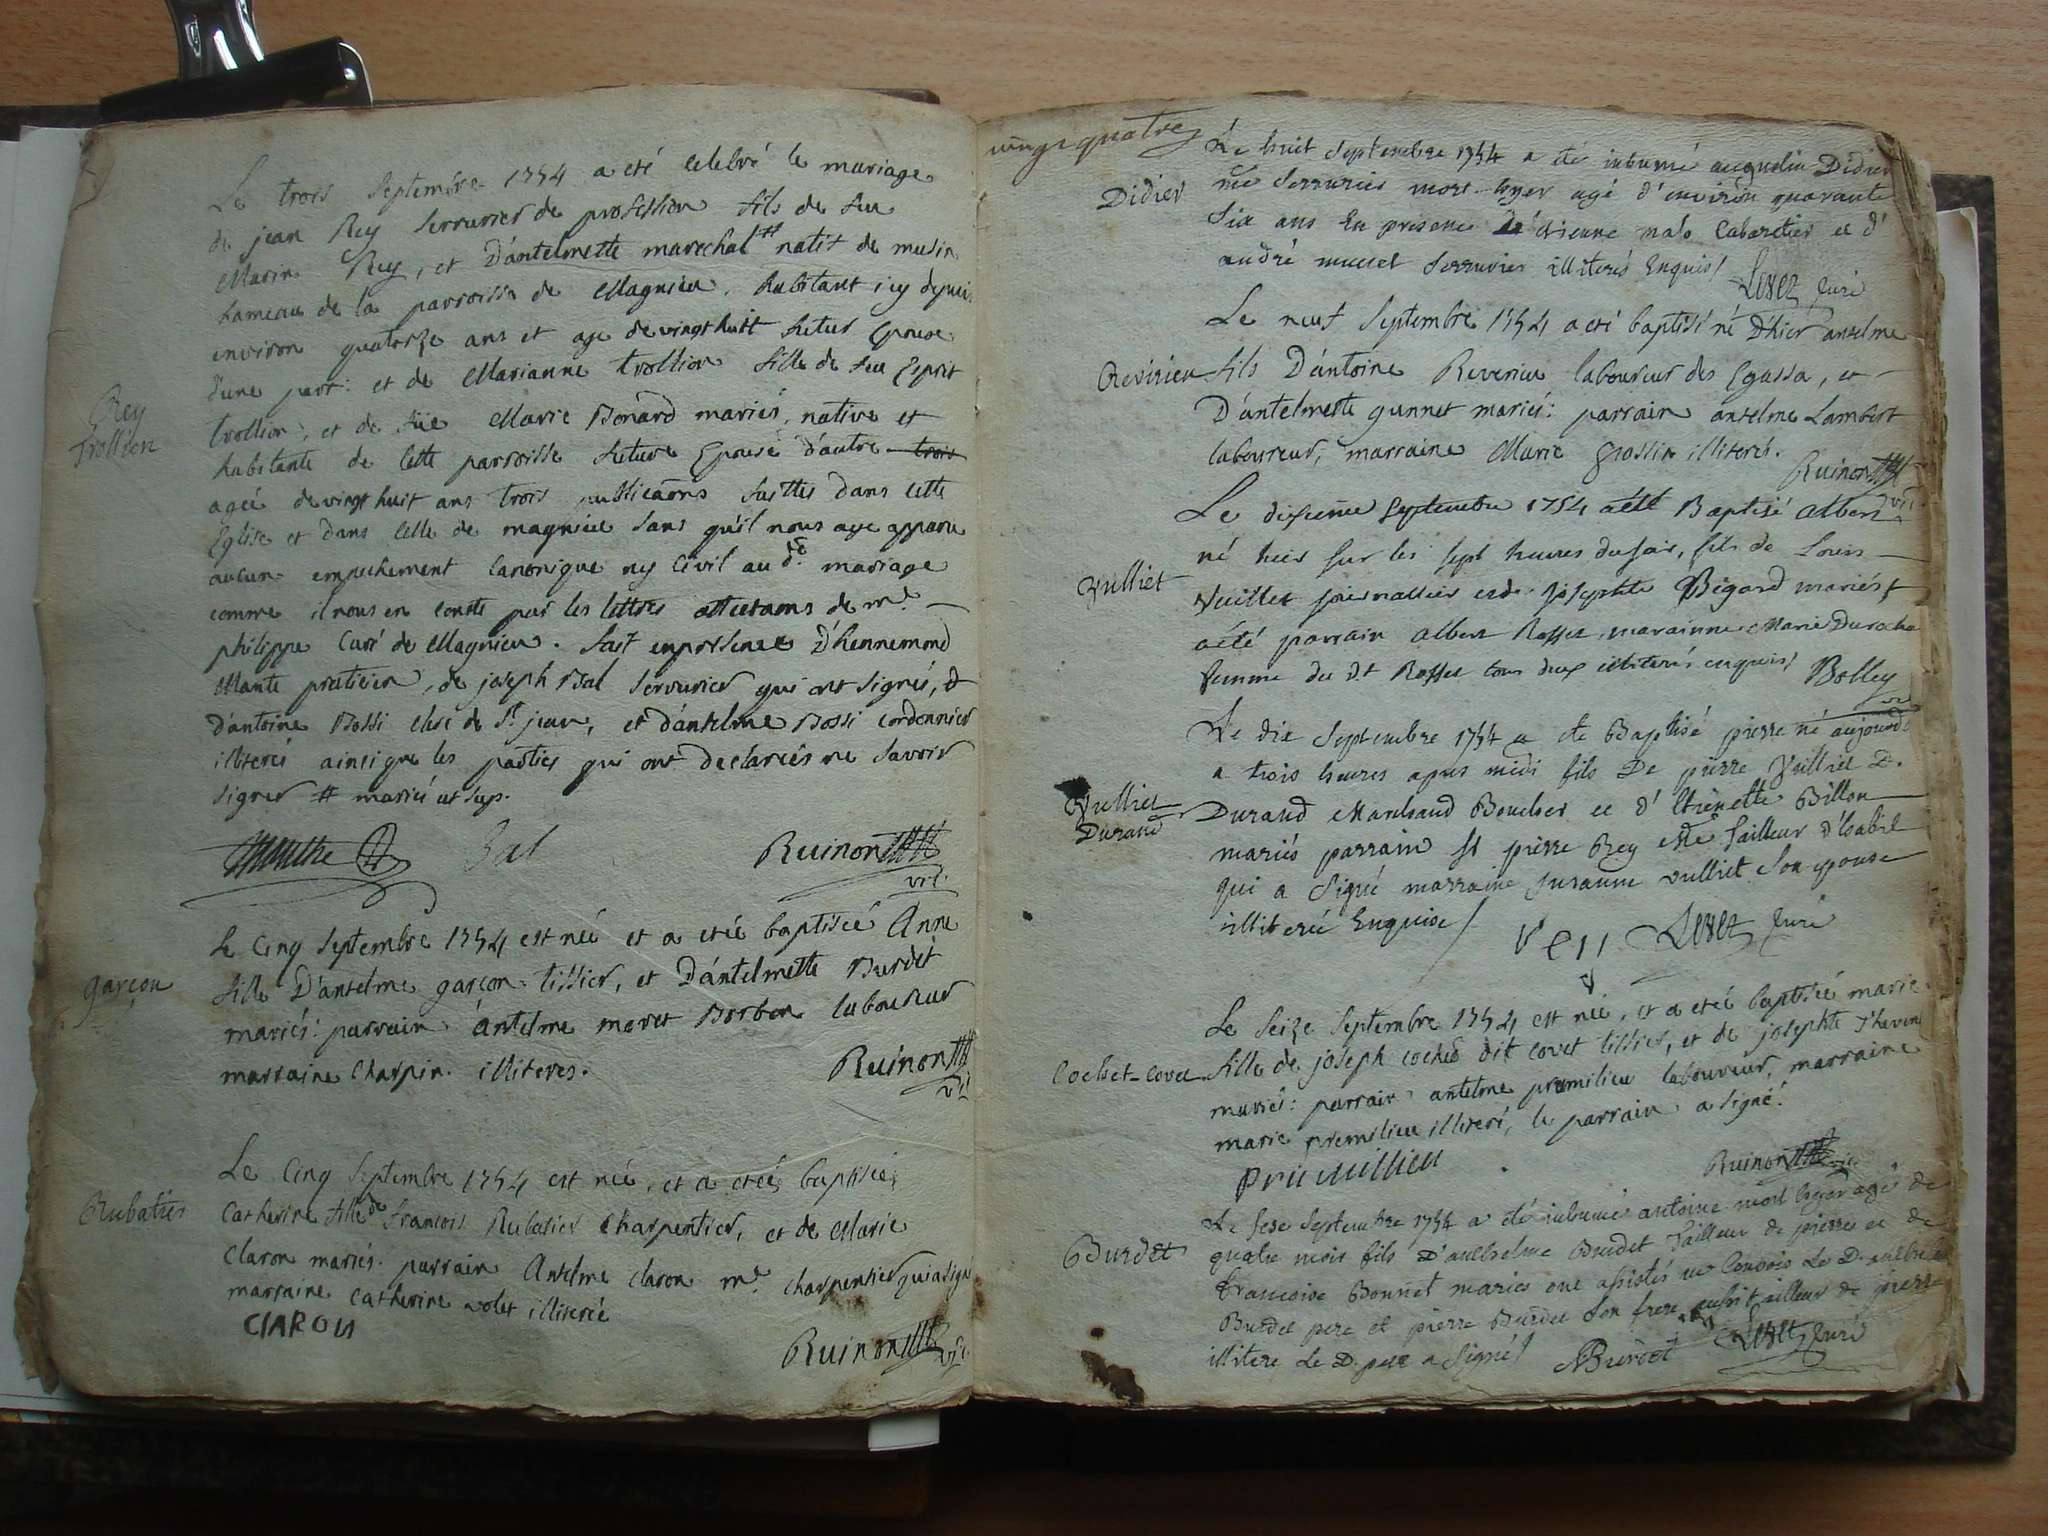 Le trois septembre 1754 a eté celebré le mariage
de jean Rey serrurier de profession fils de feu
Marin Rey, et D'antelmette marechal # natif de musin
hameau de la parroisse de Magnieu. habitant icy depuis
environ quatorze ans et age de vingt huit futur Epoux
d'une part: et de Marianne trollion fille de feu Esprit
Rey
trollion
trollion, et de füe Marie Bonard mariés, native et
habitante de cette parroisse future Epouse d'autre trois
ageé de vingt huit ans trois publicaõns faittes dans cette
Eglise et dans celle de magnieu sans qu'il nous aye apparu
aucun empechement canonique ny civil au d. mariage
comme il nous en conste par les lettres de mr
philippe Curé de Magnieu. fait en presence D'hennemond
Mante praticien, de joseph Bal serrurier qui ont signés, &
d'antoine Bossi clerc de St jean, et d'antelme Bossi cordonnier
illiterés ainsi que les parties qui ont declareés ne savoir
signer # mariés ut sup.
Manthe Bal Ruinon vic.
Le Cinq Septembre 1754 est née et a eteé baptiseé Anne
garçon
fille D'antelme garçon tissier, et D'antelmette Burdet
mariés: parrain antelme moret Borbon laboureur
marraine Charpin. illiteres.
Ruinon vic.
Le Cinq Septembre 1754 est née, et a eteé baptiseé
Rubatier
Catherine fille de francois Rubatier Charpentier, et de Marie
Claron mariés. parrain Antelme claron mr charpentier qui a signé
marraine catherine volet illitereé
ClARON
Ruinon vic.
vingt quatre
Le huit septembre 1754 a eté inhumé Didier
Didier
me serrurier mort hyer agé d'environ quarante
six ans En presence d'etienne nalo Cabaretier et d'
andré musset serrurier illiterés Enquis/
Livet Curé
Le neuf Septembre 1754 a eté baptisé né D'hier antelme
Revirieu
fils D'antoine Reverieu laboureur des Egassa, et
D'antelmette gunnet mariés: parrain antelme Lambert
laboureur, marraine Marie grossin illiterés.
Ruinon vic.
Le dixieme septembre 1754 a eté Baptisé albert
né hier sur les sept heures du soir, fils de Louis
Vulliet
Vuillet journallier et de josephte Bigard mariés &
a été parrain albert Rosset, marainne Marie Duraha
femme du dt Rosset tous deux illiterés enquis/
Bolley
vic
Le dix septembre 1754 a ete Baptisé pierre né aujourd
a trois heures apres midi fils De pierre Vulliet D.
Vulliet
Durand
Durand Marchand Boucher et d'Etienette Billon
mariés parrain Sr pierre Rey Me Tailleur d'habit
qui a signé marraine suzanne vulliet son epouse
illitereé Enquise/
Rey Livet Curé
Le seize septembre 1754 est née, et a eteé baptiseé marie
Cochet-covet
fille de joseph cochet dit covet tissier, et de josephte Thevenin
mariés: parrain antelme premilieu laboureur, marraine
marie premilieu illiteré, le parrain a signé.
Primillieu
Ruinon vic.
Le sese septembre 1754 a eté inhumé antoine mort hyer agé de
Burdet
quatre mois fils D'anthelme Burdet Tailleur de pierre et de
francoise Bonnet mariés ont assistés au Convois Le D. anthelme
Burdet pere et pierre Burdet son frere aussi tailleur de pierre
illitere Le D. pere a signé/
ABurdet Livet Curé